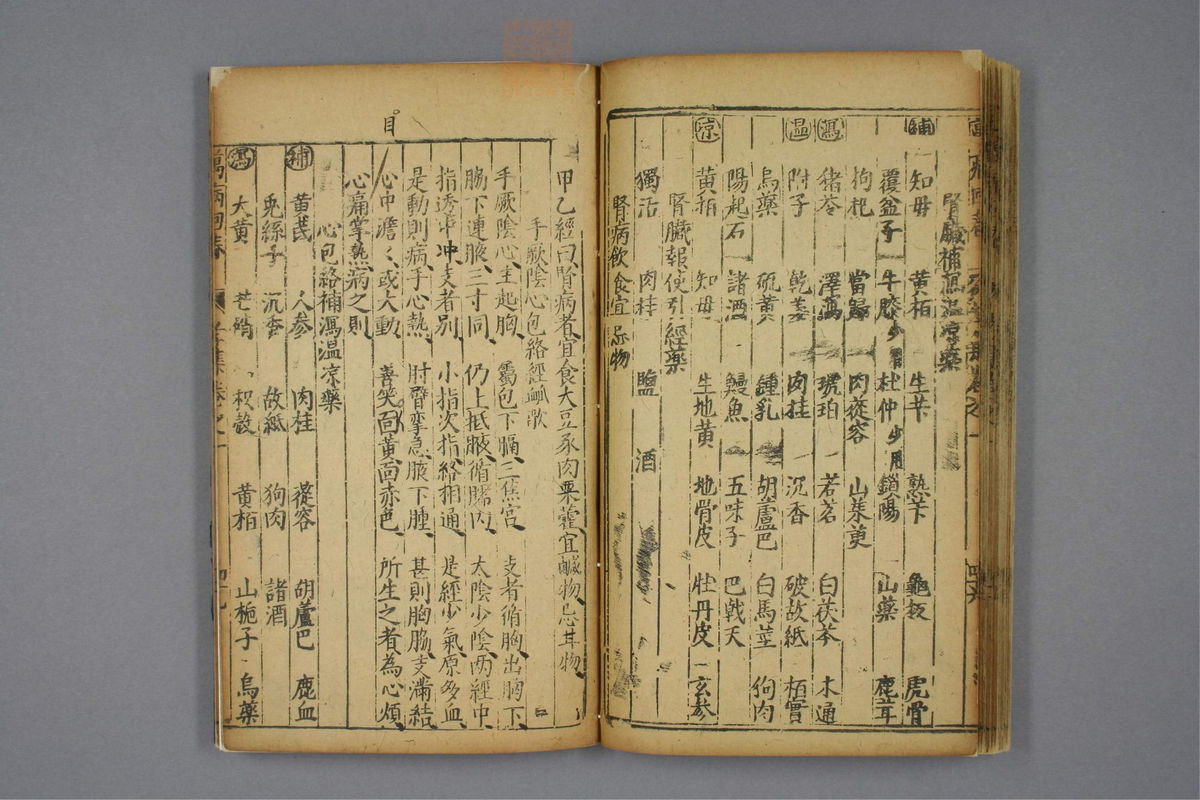 腎臟補瀉温凉藥
補 知母 黄栢 生苄 熟苄 龜板 虎骨
覆盆子 牛膝 杜仲 鎖陽 山藥 鹿茸
枸杞 當歸 肉蓯容 山茱萸
瀉 猪苓 澤瀉 琥珀 若茗 白茯苓 木通
温 附子 乾姜 肉桂 沉香 破故紙 栢實
烏藥 硫黄 鍾乳 胡蘆巴 白馬莖 狗肉
陽起石 諸酒 鰻魚 五味子 巴戟天
凉 黄栢 知母 生地黄 地骨皮 牡丹皮 玄参
腎臟報使引經藥
獨活 肉桂 鹽 酒
腎病飲食宜忌物
甲乙經曰腎病者宜食大豆豕肉栗藿宜鹹物忌甘物
手厥陰心包絡經血歌
手厥陰心主起胸 屬包下膈三焦宮 支者循胸出胸下
脇下連腋三寸同 仍上抵腋循臑内 太陰少陰两經中
指透中冲支者別 小指次指絡相通 是經少氣原多血
是動則病手心熱 肘臂攣急腋下腫 甚則胸脇支滿結
心中澹〻或大動 善笑目黄面赤色 所生之者為心煩
心痛掌熱病之則
心包絡補瀉温凉藥
補 黄芪 人参 肉桂 蓯容 胡蘆巴 鹿血
兎絲子 沉香 故紙 狗肉 諸酒
瀉 大黄 芒硝 枳殼 黄栢 山梔子 烏藥
萬病回春
目